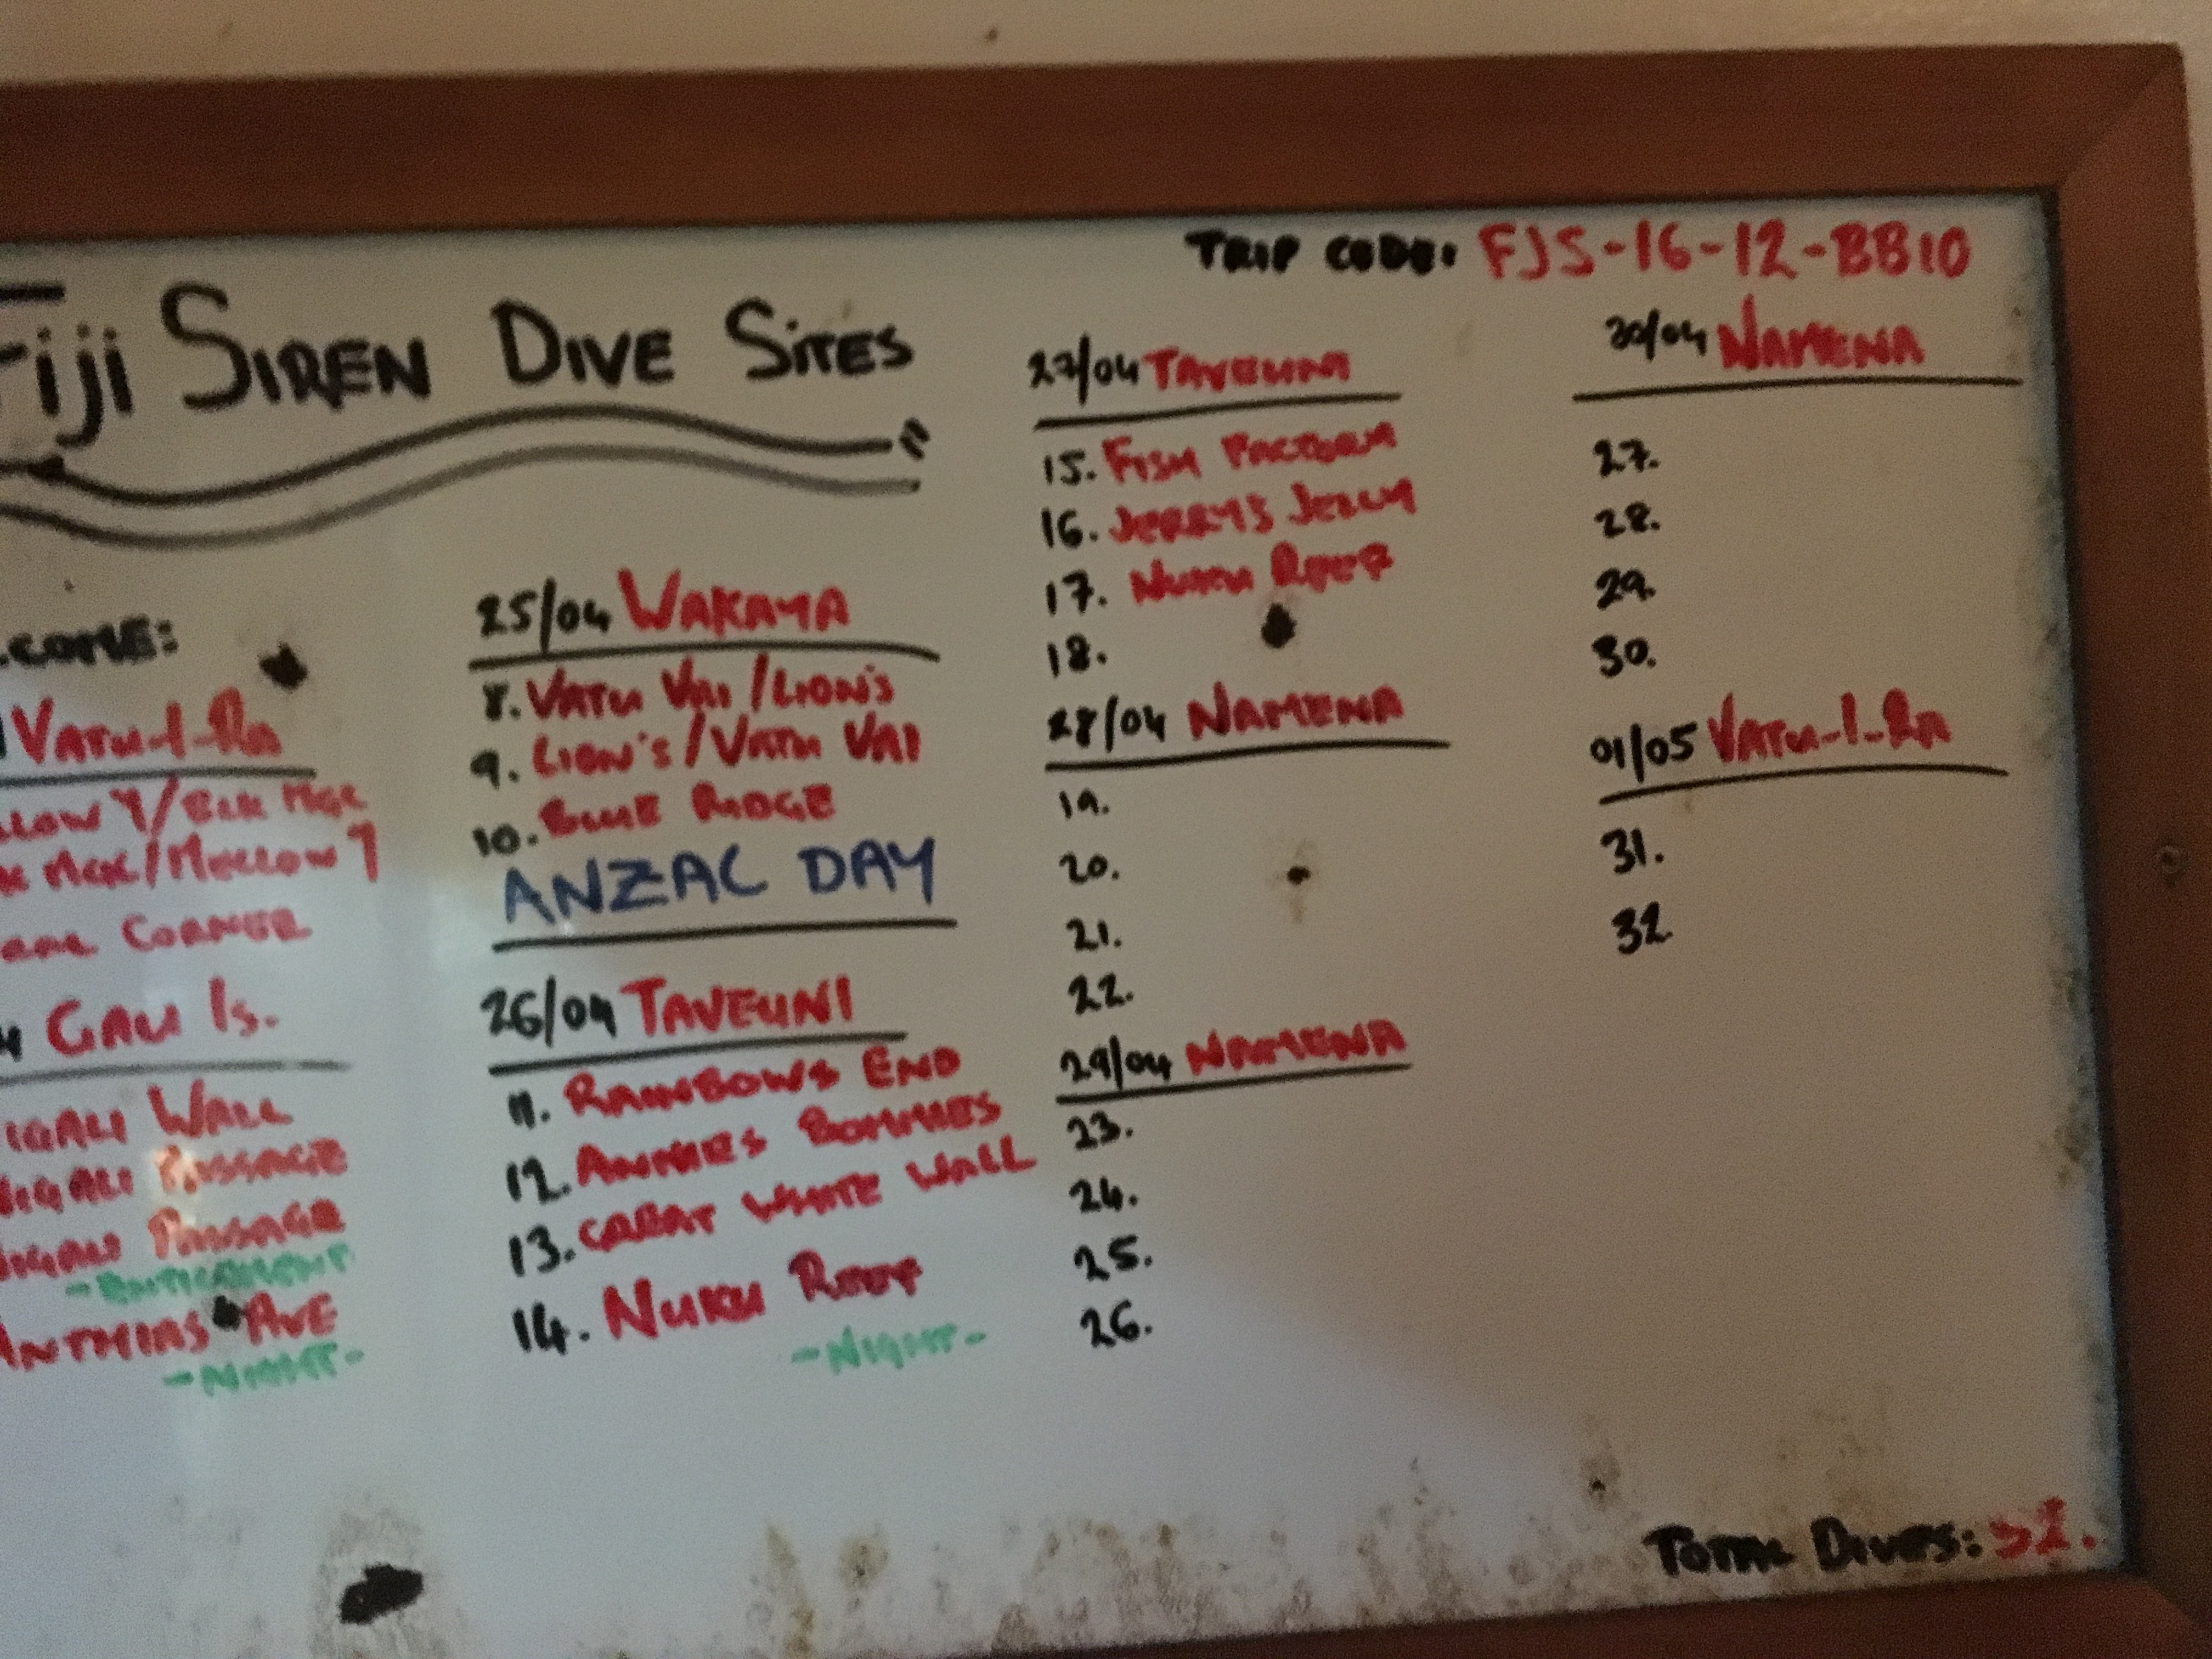 Fiji SIREN DIVE SITES
COME:
VATU-I-RA
LLOW 1/BLK MGC
K MGC/MELLOW 1
CORNER
4 GAU IS.
IGALI WALL
NIGALI PASSAGE
NIGALI PASSAGE
ANTHIAS AVE
-NIGHT-
25/04 WAKAYA
8. VATU VAI/LION'S
9. LION'S/VATU VAI
10. BLUE RIDGE
ANZAC DAY
26/04 TAVEUNI
11. RAINBOWS END
12. ANNIES BOMMIES
13. GREAT WHITE WALL
14. NUKU REEF
-NIGHT-
TRIP CODE: FJS-16-12-BB10
27/04 TAVEUNI
15. FISH FACTORY
16. JERRY'S JELLY
17. NUKU REEF
18.
28/04 NAMENA
19.
20.
21.
22.
29/04 NAMENA
23.
24.
25.
26.
30/04 NAMENA
27.
28.
29.
30.
01/05 VATU-I-RA
31.
32
TOTAL DIVES: 32.